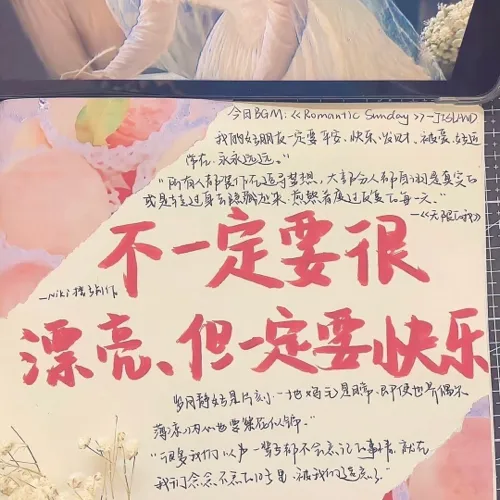 今日BGM:《Romantic Sunday》-J_ISLAND
我的好朋友一定要平安、快乐、发财、被爱、好运
常在、永永远远。"
"所有人都装作在追寻梦想,大部分人都自诩是真实
或是转过身去隐藏起来,煎熬着度过反复的每一天。"
—《无限
不一定要很
—Niki
漂亮、但一定要快乐
岁月静好是片刻、一地鸡毛是日常、即使世界偶尔
薄凉、内心也要繁花似锦。"
"很多我们以为一辈子都不会忘记的事情、就在
我们念念不忘的日子里、被我们遗忘了"